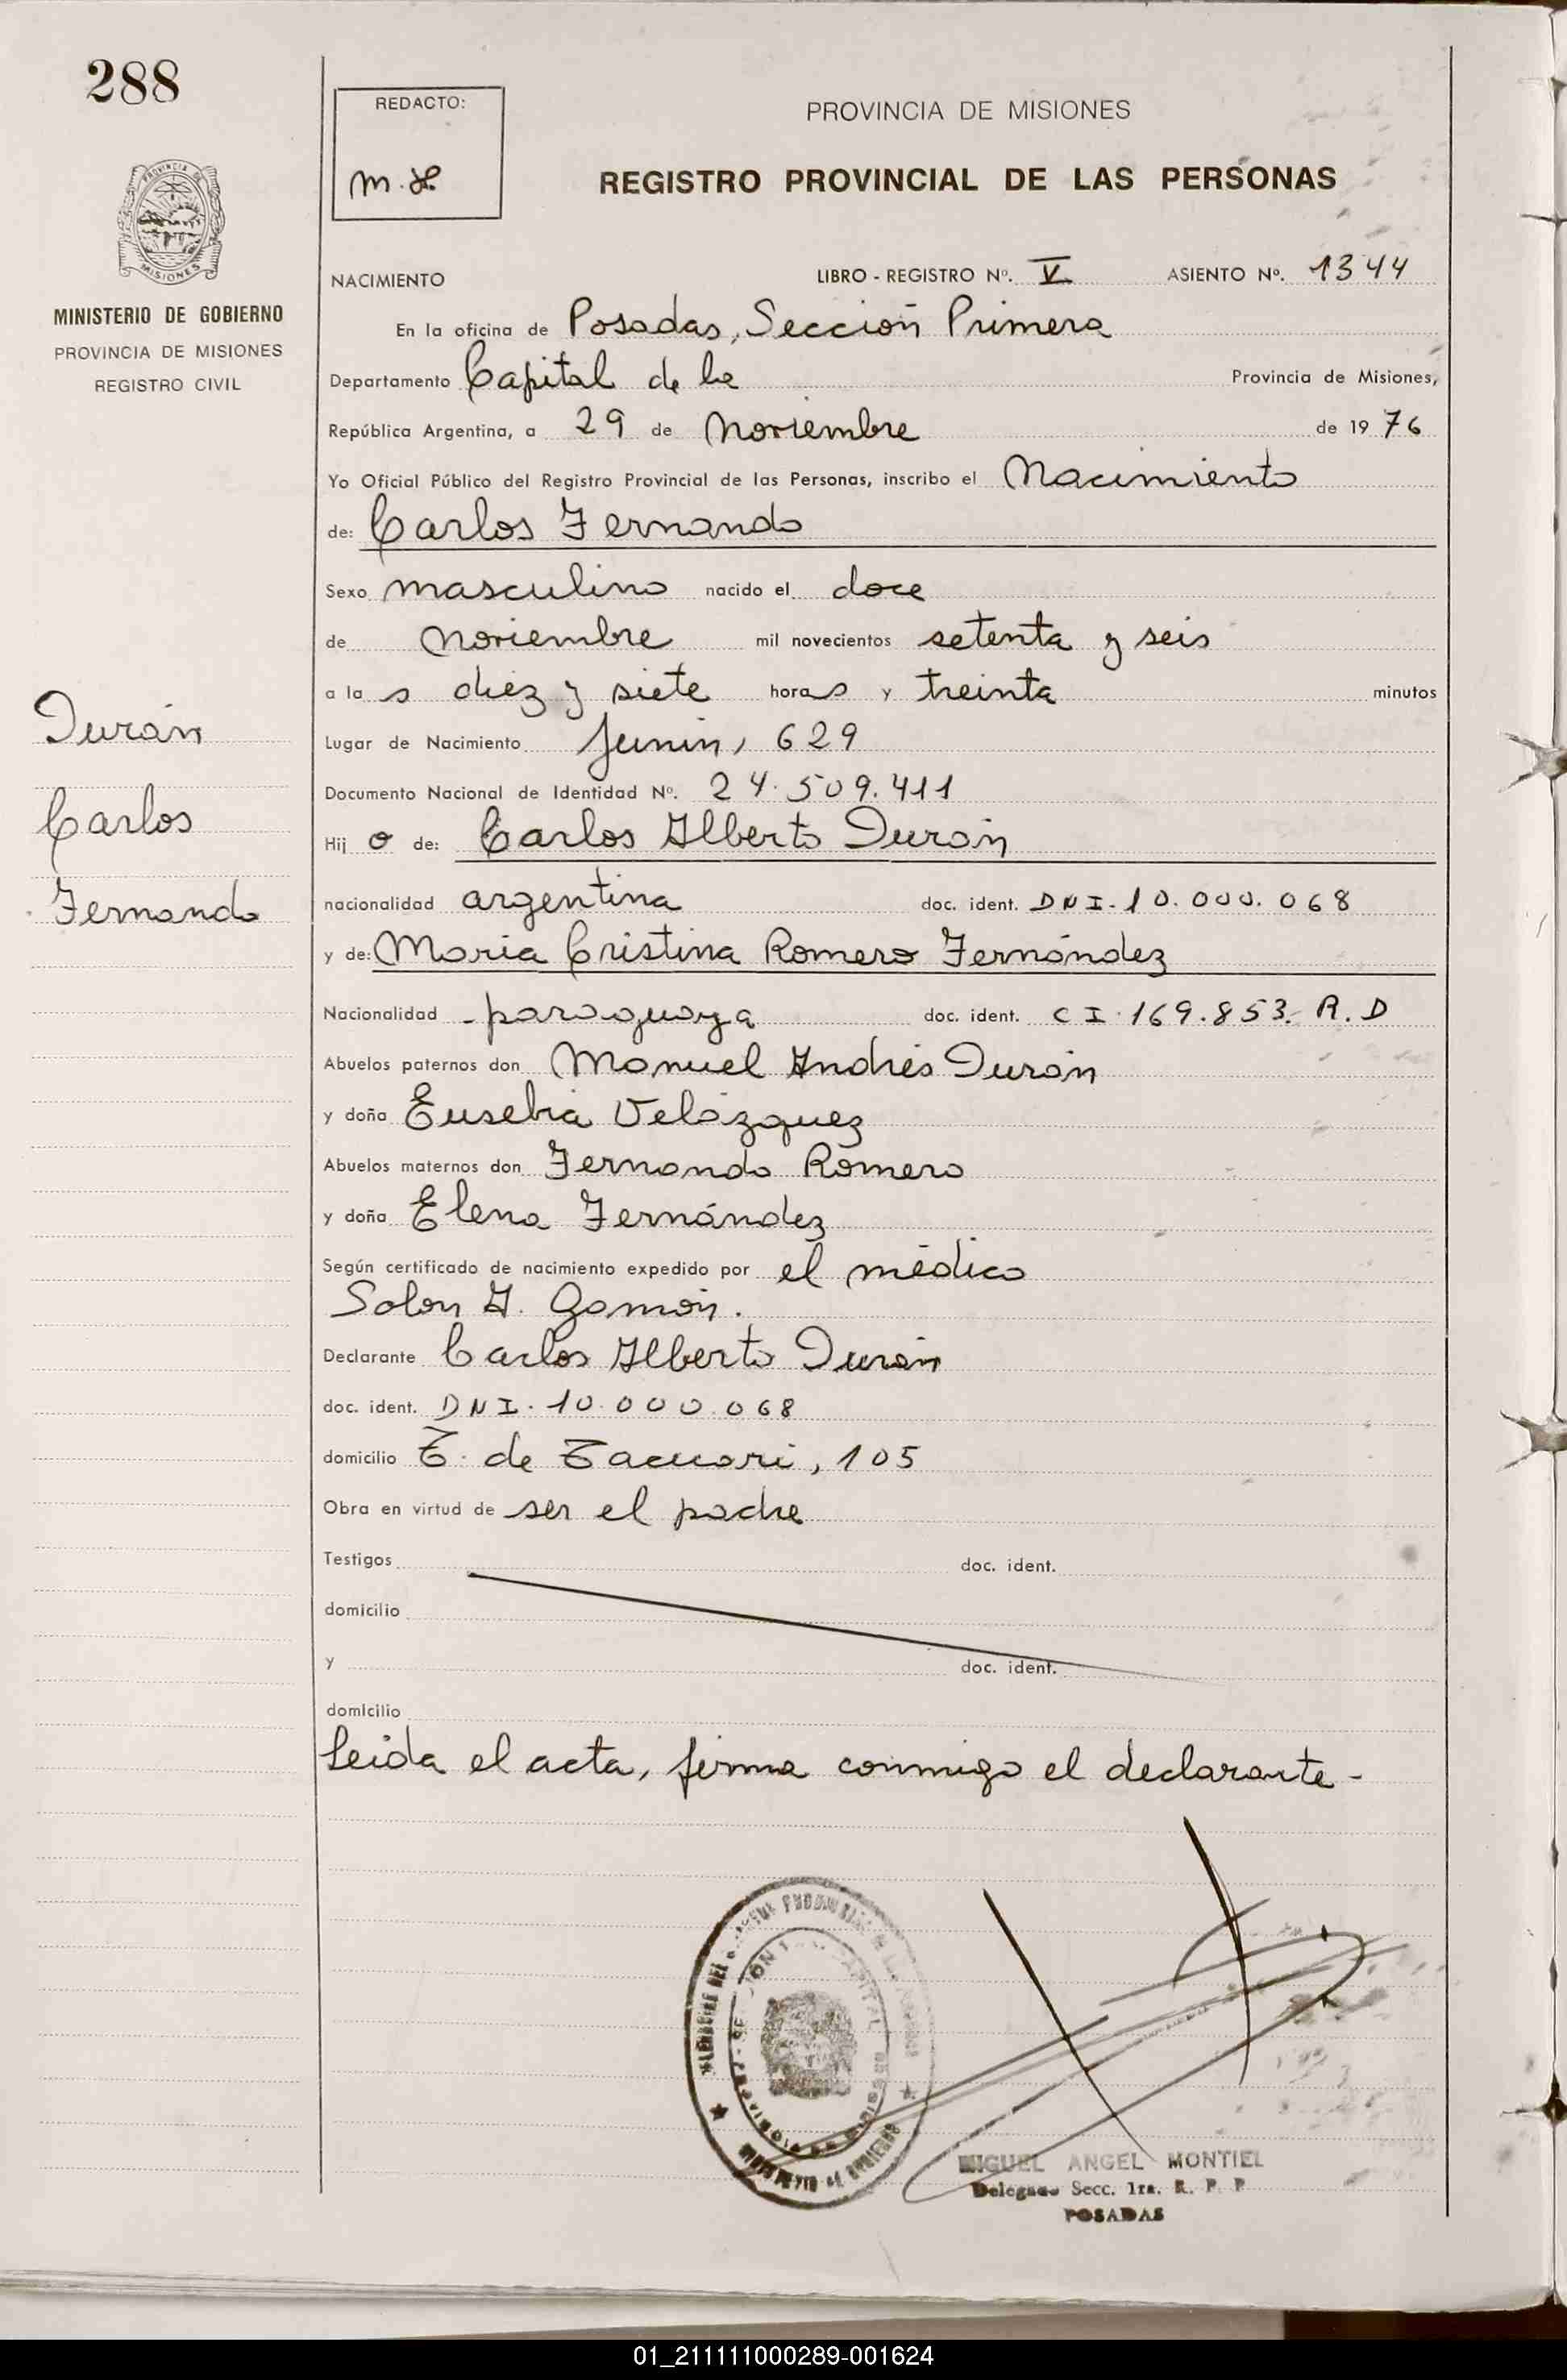 288
REDACTO:
M. H.
PROVINCIA DE MISIONES
REGISTRO PROVINCIAL DE LAS PERSONAS
PROVINCIA DE
MISIONES
MINISTERIO DE GOBIERNO
PROVINCIA DE MISIONES
REGISTRO CIVIL
NACIMIENTO LIBRO - REGISTRO Nº. V ASIENTO Nº. 1344
En la oficina de Posadas, Sección Primera
Departamento Capital de la Provincia de Misiones,
República Argentina, a 29 de Noviembre de 19 76
Yo Oficial Público del Registro Provincial de las Personas, inscribo el Nacimiento
de: Carlos Fernando
Sexo masculino nacido el doce
de Noviembre mil novecientos setenta y seis
a la s diez y siete horas y treinta minutos
Lugar de Nacimiento Junin, 629
Documento Nacional de Identidad Nº. 24.509.411
Hij o de: Carlos Alberto Durán
nacionalidad argentina doc. ident. DNI. 10.000.068
y de: María Cristina Romero Fernández
Nacionalidad paraguaya doc. ident. CI. 169.853. R.D
Abuelos paternos don Manuel Andrés Durán
y doña Eusebia Velázquez
Abuelos maternos don Fernando Romero
y doña Elena Fernández
Según certificado de nacimiento expedido por el médico
Solon A. Gamón.
Declarante Carlos Alberto Durán
doc. ident. DNI. 10.000.068
domicilio T. de Tacuari, 105
Obra en virtud de ser el padre
Testigos doc. ident.
domicilio
y doc. ident.
domicilio
Leída el acta, firma conmigo el declarante -
Durán
Carlos
Fernando
MIGUEL ANGEL MONTIEL
Delegado Secc. 1ra. R. P. P.
POSADAS
01_211111000289-001624